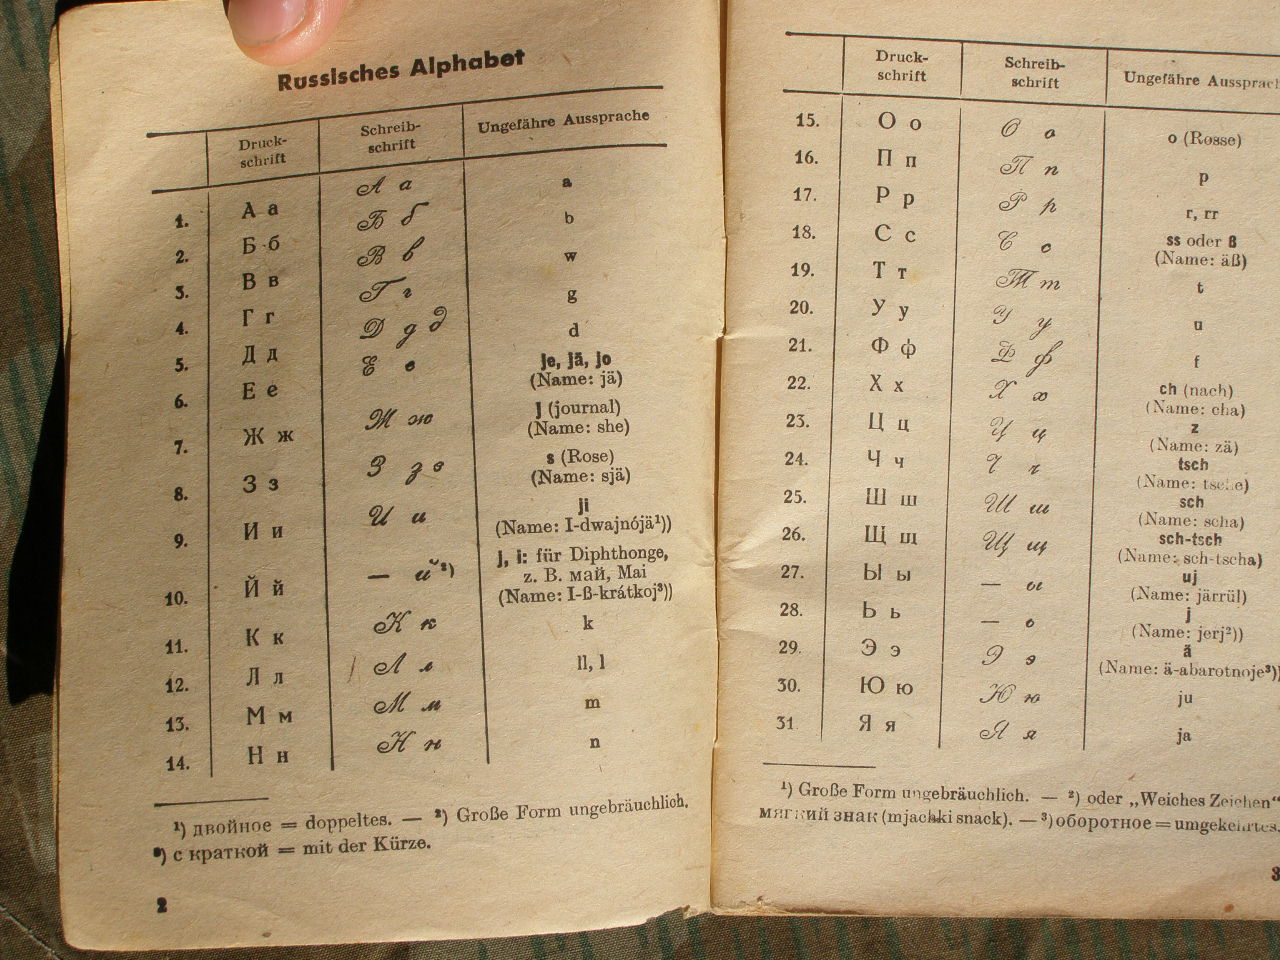 Russisches Alphabet
Druck-schrift Schreib-schrift Ungefähre Aussprache
1. А а А а a
2. Б б Б б b
3. В в В в w
4. Г г Г г g
5. Д д Д д д d
6. Е е Е е je, jä, jo
(Name: jä)
7. Ж ж Ж ж j (journal)
(Name: she)
8. З з З з з s (Rose)
(Name: sjä)
9. И и И и ji
(Name: I-dwajnójä¹))
10. Й й — й²) j, i: für Diphthonge,
z. B. май, Mai
(Name: I-ß-krátkoj³))
11. К к К к k
12. Л л Л л ll, l
13. М м М м m
14. Н н Н н n
¹) двойное = doppeltes. — ²) Große Form ungebräuchlich.
³) с краткой = mit der Kürze.
2
Druck-schrift Schreib-schrift Ungefähre
15. О о О о o (Rosse)
16. П п П п p
17. Р р Р р r, rr
18. С с С с ss oder ß
(Name: äß)
19. Т т Т т t
20. У у У у u
21. Ф ф Ф ф f
22. Х х Х х ch (nach)
(Name: cha)
23. Ц ц Ц ц z
(Name: zä)
24. Ч ч Ч ч tsch
(Name: tsche)
25. Ш ш Ш ш sch
(Name: scha)
26. Щ щ Щ щ sch-tsch
(Name: sch-tscha)
27. Ы ы — ы uj
(Name: järrül)
28. Ь ь — ь j
(Name: jerj²))
29. Э э Э э ä
(Name: ä-abarotnoje³))
30. Ю ю Ю ю ju
31 Я я Я я ja
¹) Große Form ungebräuchlich. — ²) oder „Weiches Zeichen“
мягкий знак (mjachki snack). — ³) оборотное = umgekehrtes.
3